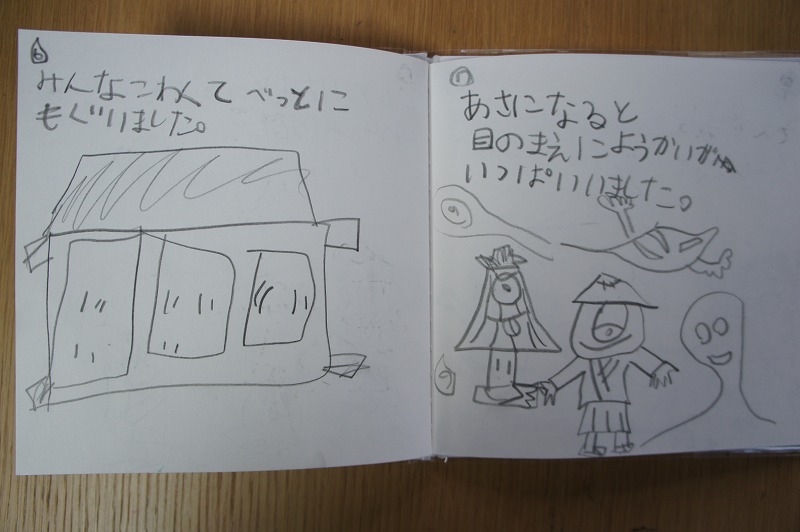 6
みんなこわくて べっとに
もぐりました。
あさになると
目のまえにようかいが
いっぱいいました。